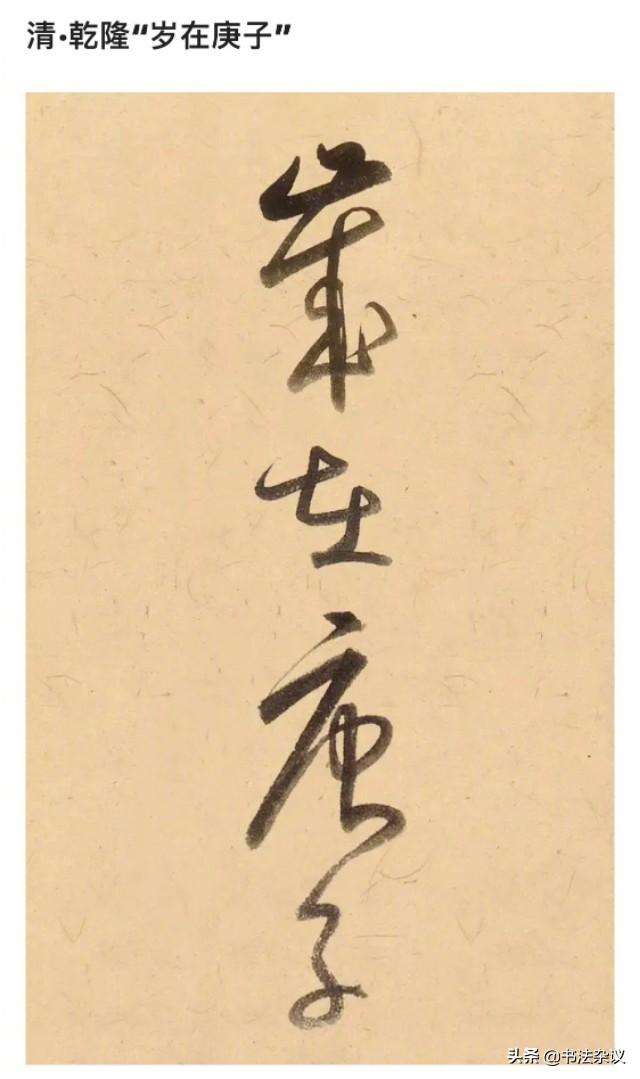 清·乾隆“岁在庚子”
歲在庚子
头条 @书法杂议